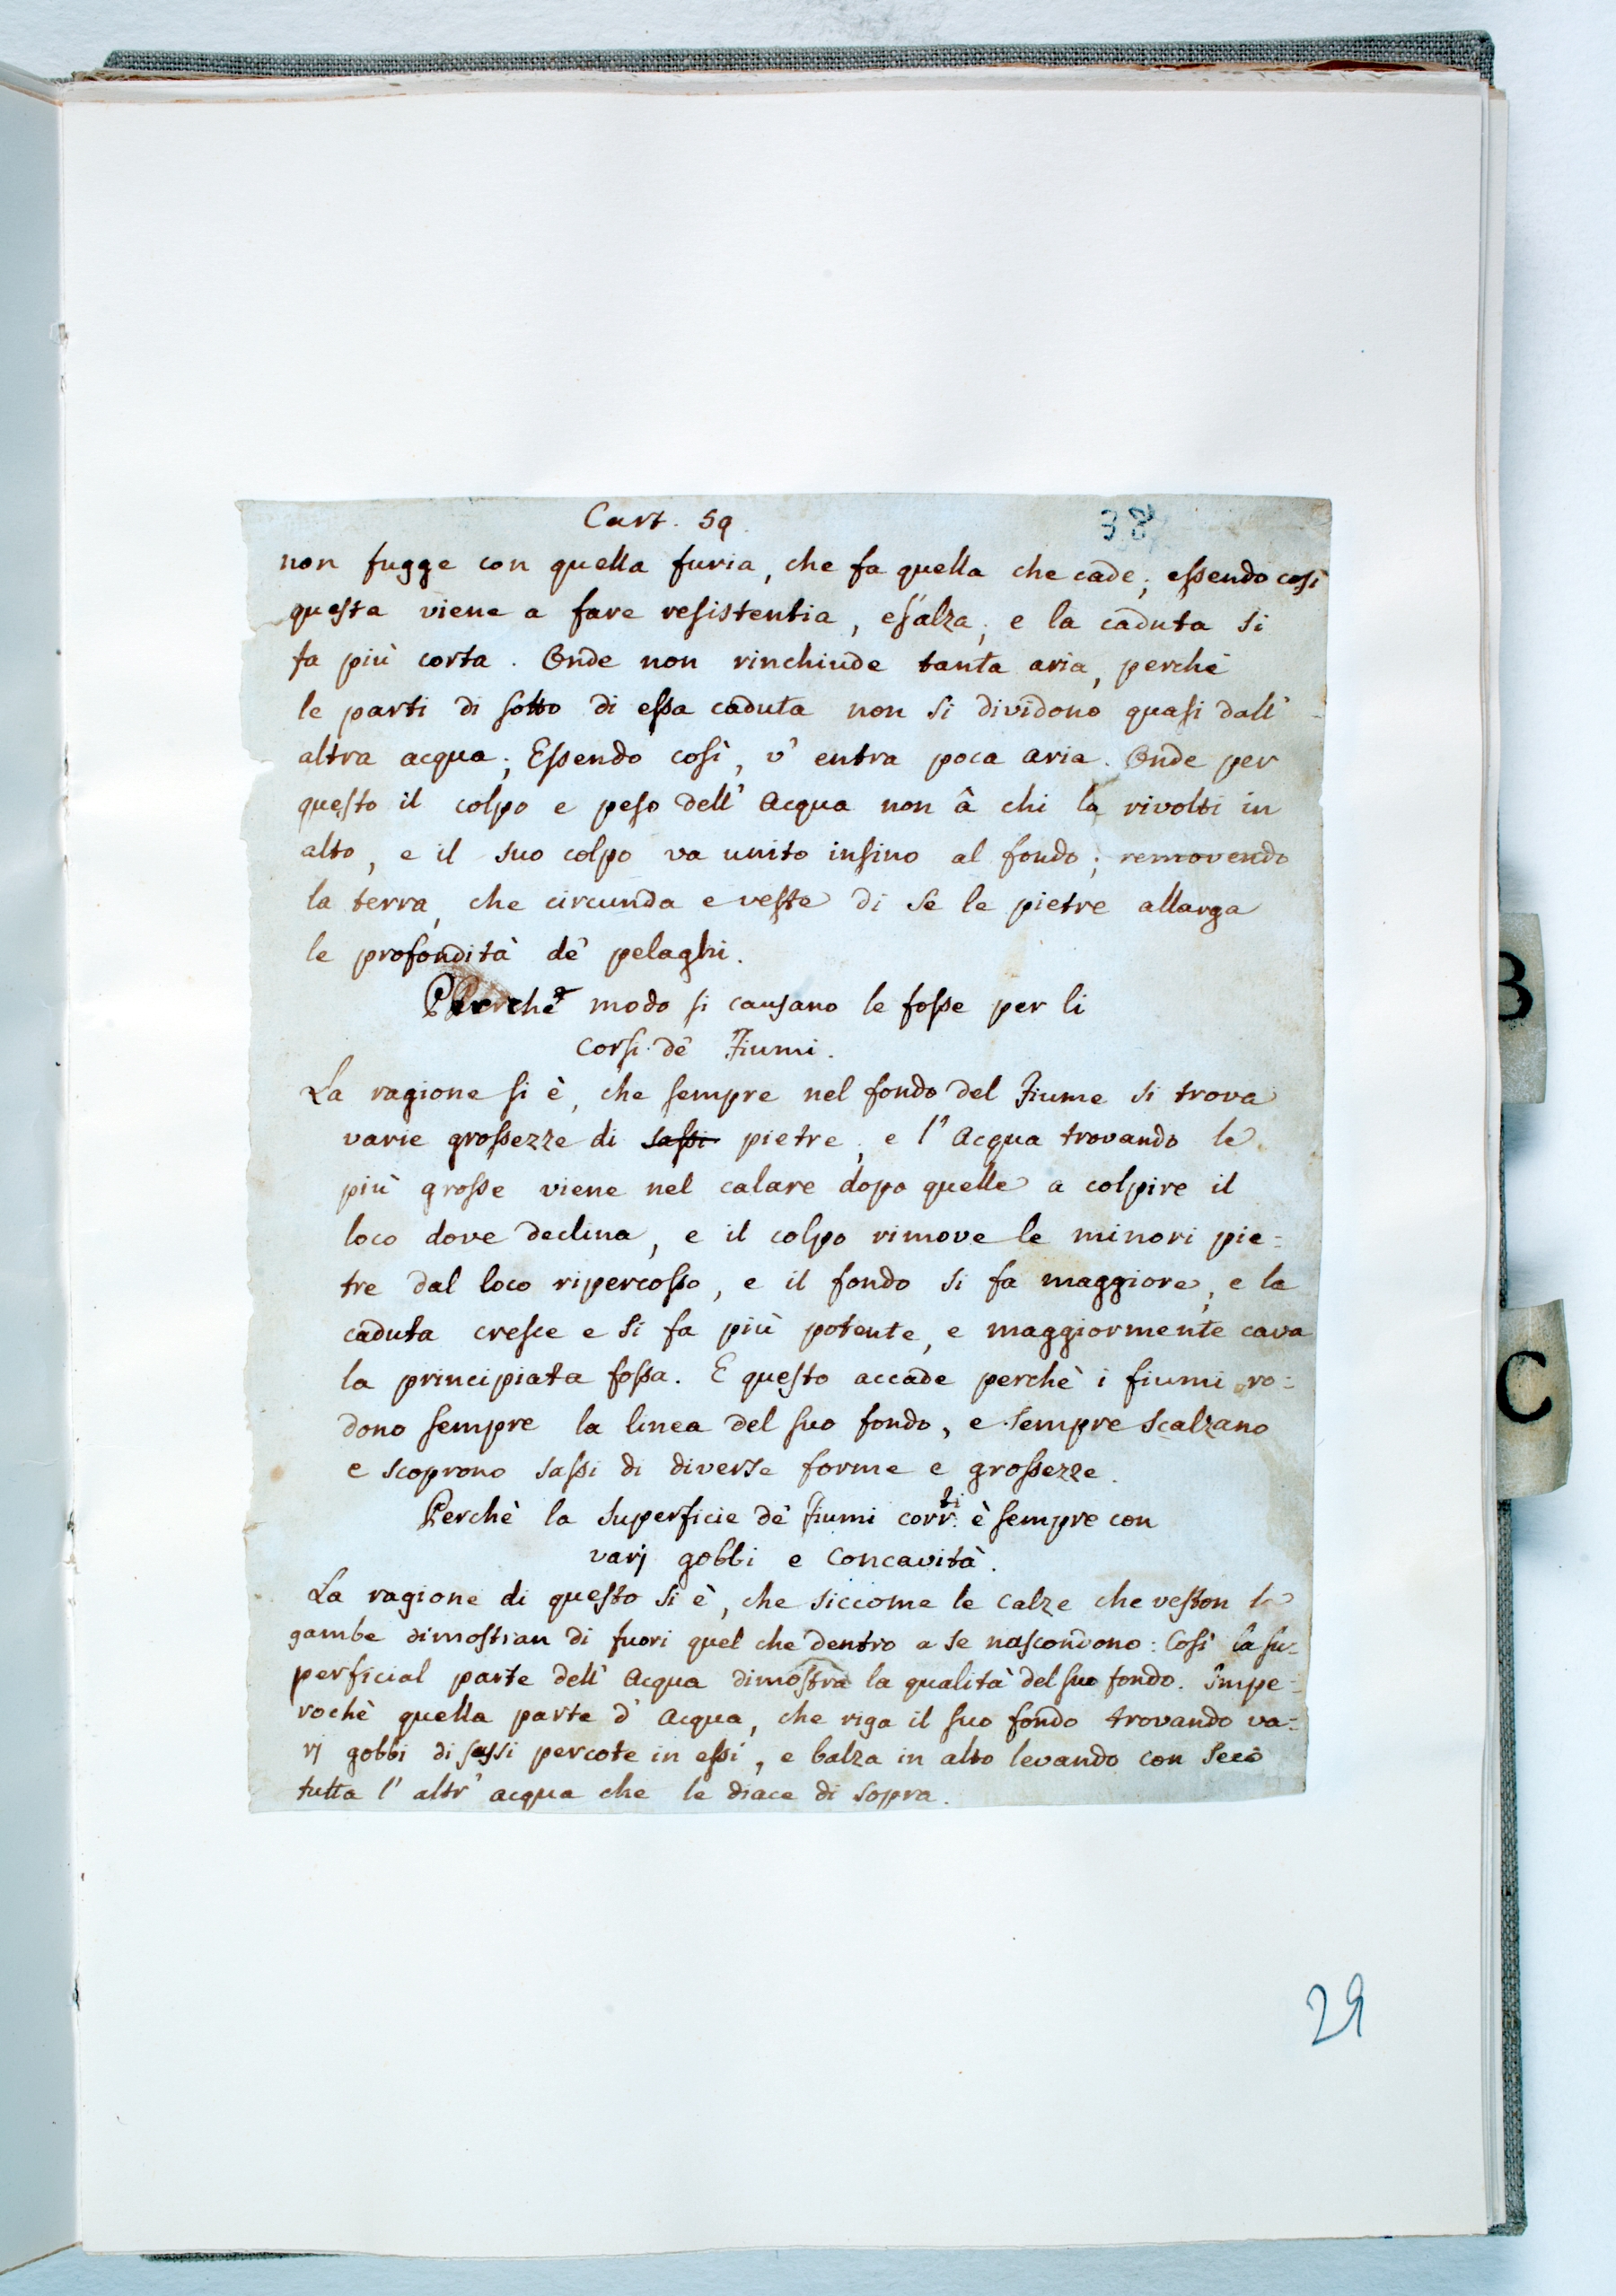 Cart. 59.
38
non fugge con quella furia, che fa quella che cade; essendo così
questa viene a fare resistentia, es'alza; e la caduta si
fa più corta. Onde non rinchiude tanta aria, perchè
le parti di sotto di essa caduta non si dividono quasi dall'
altra acqua; Essendo così, v' entra poca aria. Onde per
questo il colpo e peso dell' Acqua non â chi la rivolti in
alto, e il suo colpo va unito insino al fondo; removendo
la terra, che circunda e veste di se le pietre allarga
le profondità de' pelaghi.
modo si causano le fosse per li
corsi de' Fiumi.
La ragione si è, che sempre nel fondo del Fiume si trova
varie grossezze di sassi pietre, e l' Acqua trovando le
più grosse viene nel calare dopo quelle a colpire il
loco dove declina, e il colpo rimove le minori pie=
tre dal loco ripercosso, e il fondo si fa maggiore, e la
caduta cresce e si fa più potente, e maggiormente cava
la principiata fossa. E questo accade perchè i fiumi ro=
dono sempre la linea del suo fondo, e sempre scalzano
e scoprono sassi di diverse forme e grossezze.
Perchè la superficie de' fiumi corr.ti è sempre con
varj gobbi e concavità.
La ragione di questo si è, che siccome le calze che veston le
gambe dimostran di fuori quel che dentro a se nascondono: Così la su=
perficial parte dell' Acqua dimostra la qualità del suo fondo. Impe=
rochè quella parte d' Acqua, che riga il suo fondo trovando va=
rj gobbi di sassi percote in essi, e balza in alto levando con seco
tutta l' altr' acqua che le diace di sopra.
29
B
C